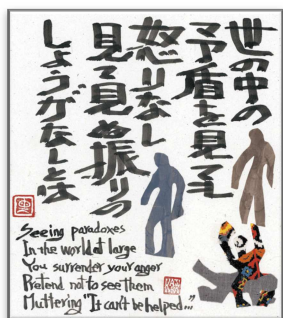 世の中の
矛盾を見ても
怒りなし
見て見ぬ振りの
しょうがなしとは
Seeing paradoxes
In the world at large
You surrender your anger
Pretend not to see them
Muttering "It can't be helped..."